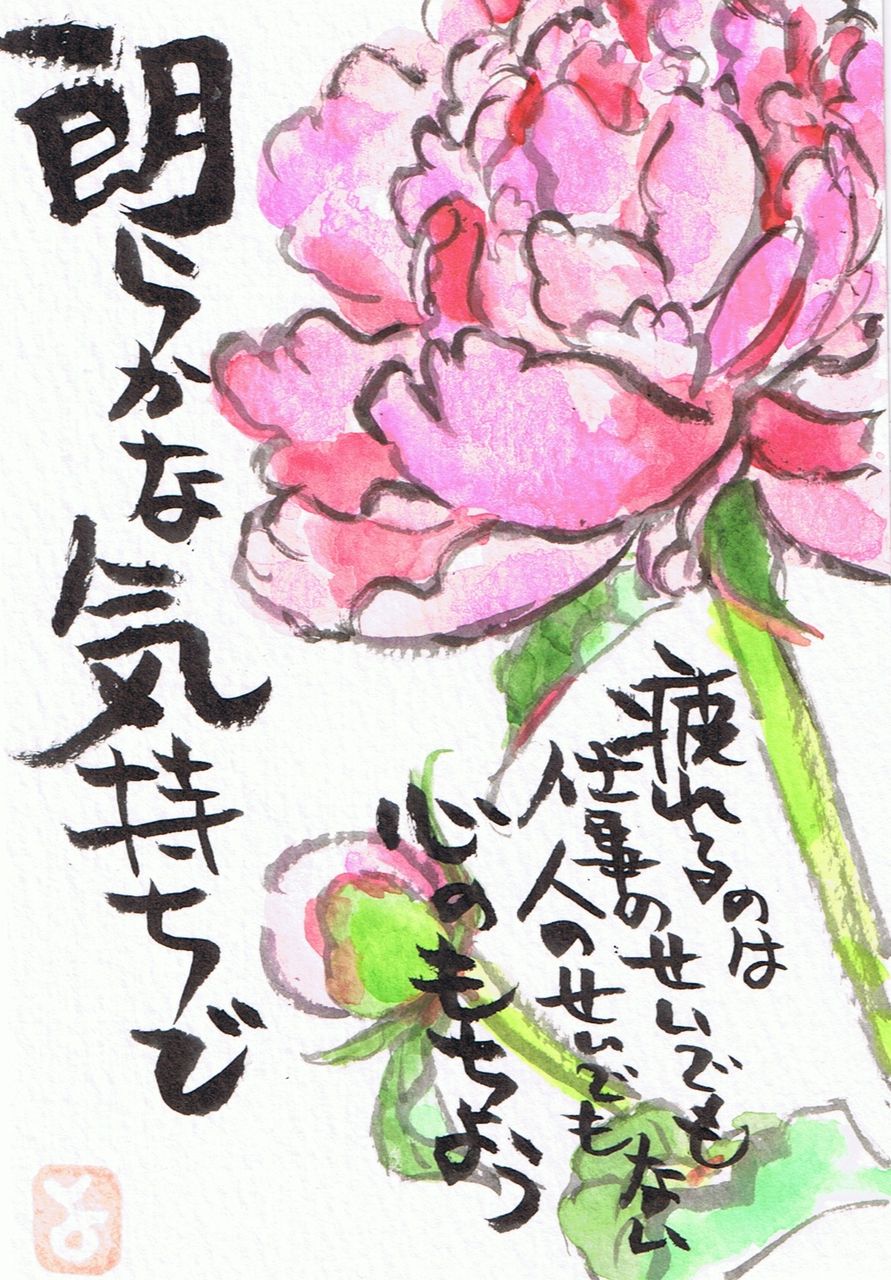 疲れるのは
仕事のせいでも
人のせいでも
ない
心のもちよう
朗らかな気持ちび
よ